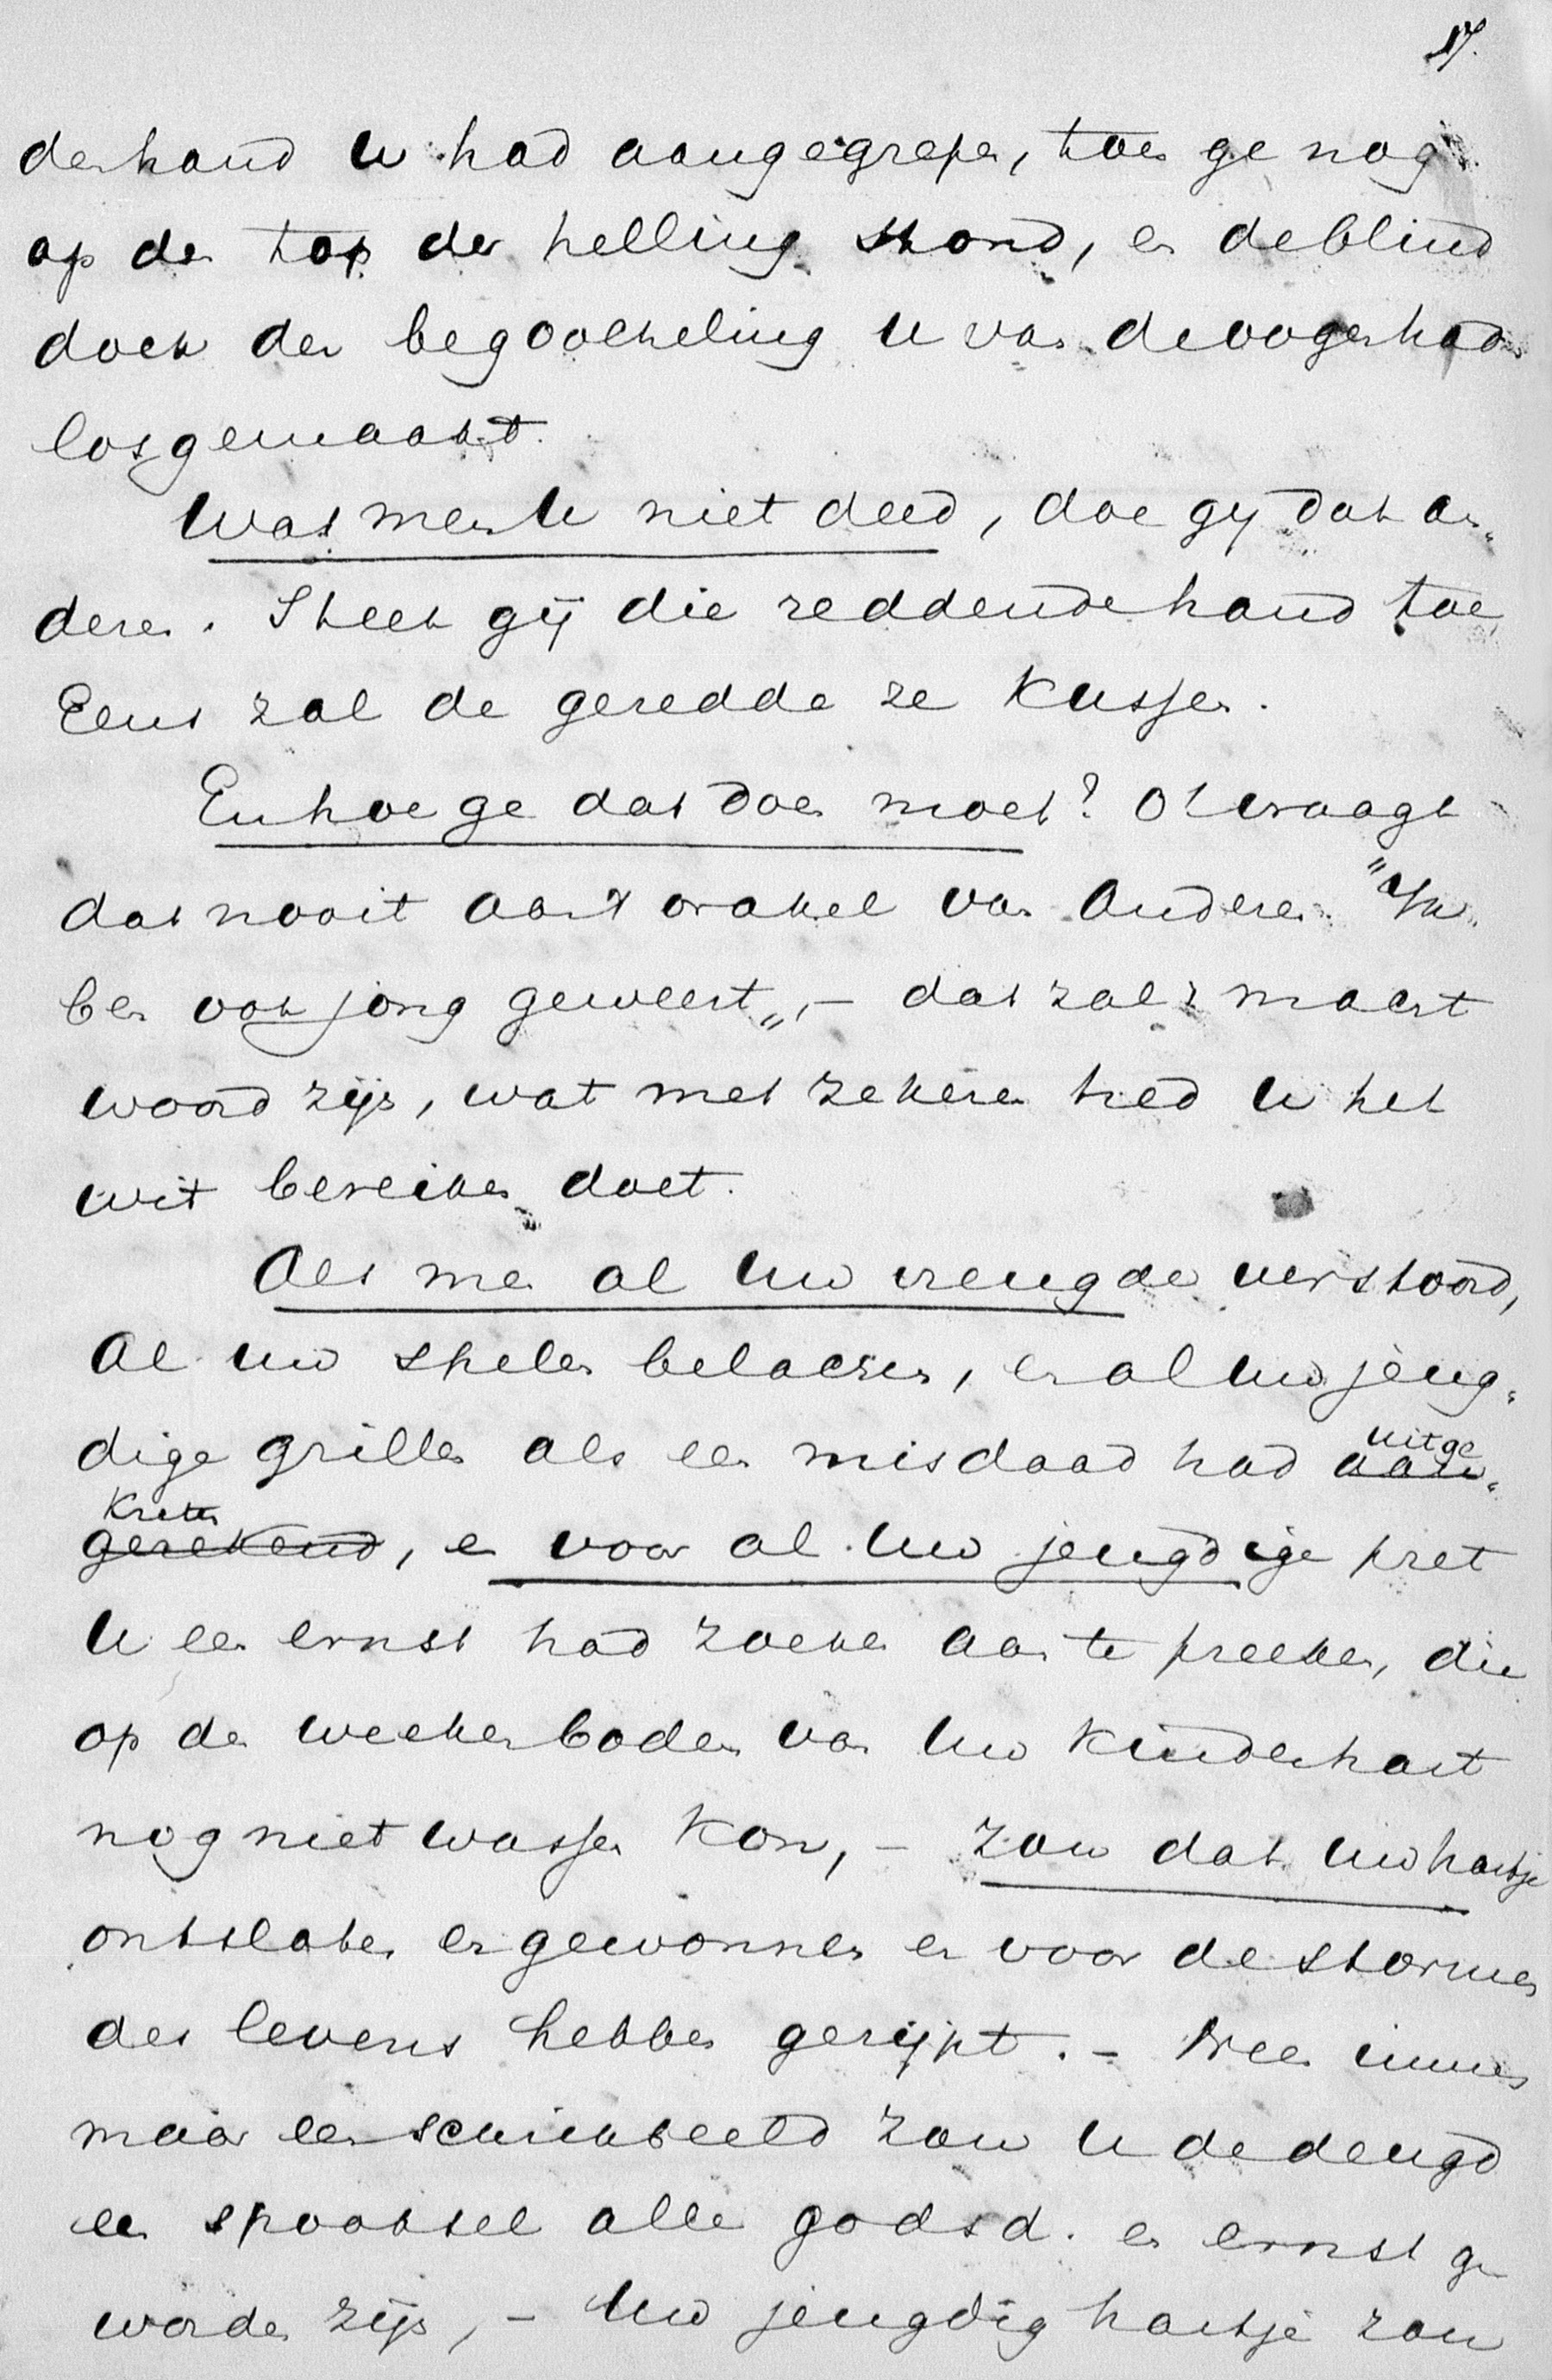 17.
derhand U had aangegrepen, toen ge nog
op den top der helling stond, en de blind
doek der begoocheling U van de oogen had
losgemaakt.
Wat men U niet deed, doe gij dat an„
deren. Steek gij die reddende hand toe
Eens zal de geredde ze kussen.
En hoe ge dat doen moet? O! vraagt
dat nooit aan 't orakel van Anderen. "Ik
ben ook jong geweest", – dat zal 't macht
woord zijn, wat met zekeren tred U het
wit bereiken doet.
Als men al Uw vreugde verstoord,
Al Uw spelen belachen, en al Uw jeug„
dige grillen als een misdaad had uitge
aan„
kreten
gerekend, en voor al Uw jeugdige pret
U een ernst had zoeken aan te preeken, die
op den weeken bodem van Uw kinderhart
nog niet wassen kon, – zou dat Uw hartje
ontsloten en gewonnen en voor de stormen
des levens hebben gerijpt. – Neen immers
maar een schrikbeeld zou U de deugd
een spooksel alle godsd. en ernst ge
worden zijn, – Uw jeugdig hartje zou